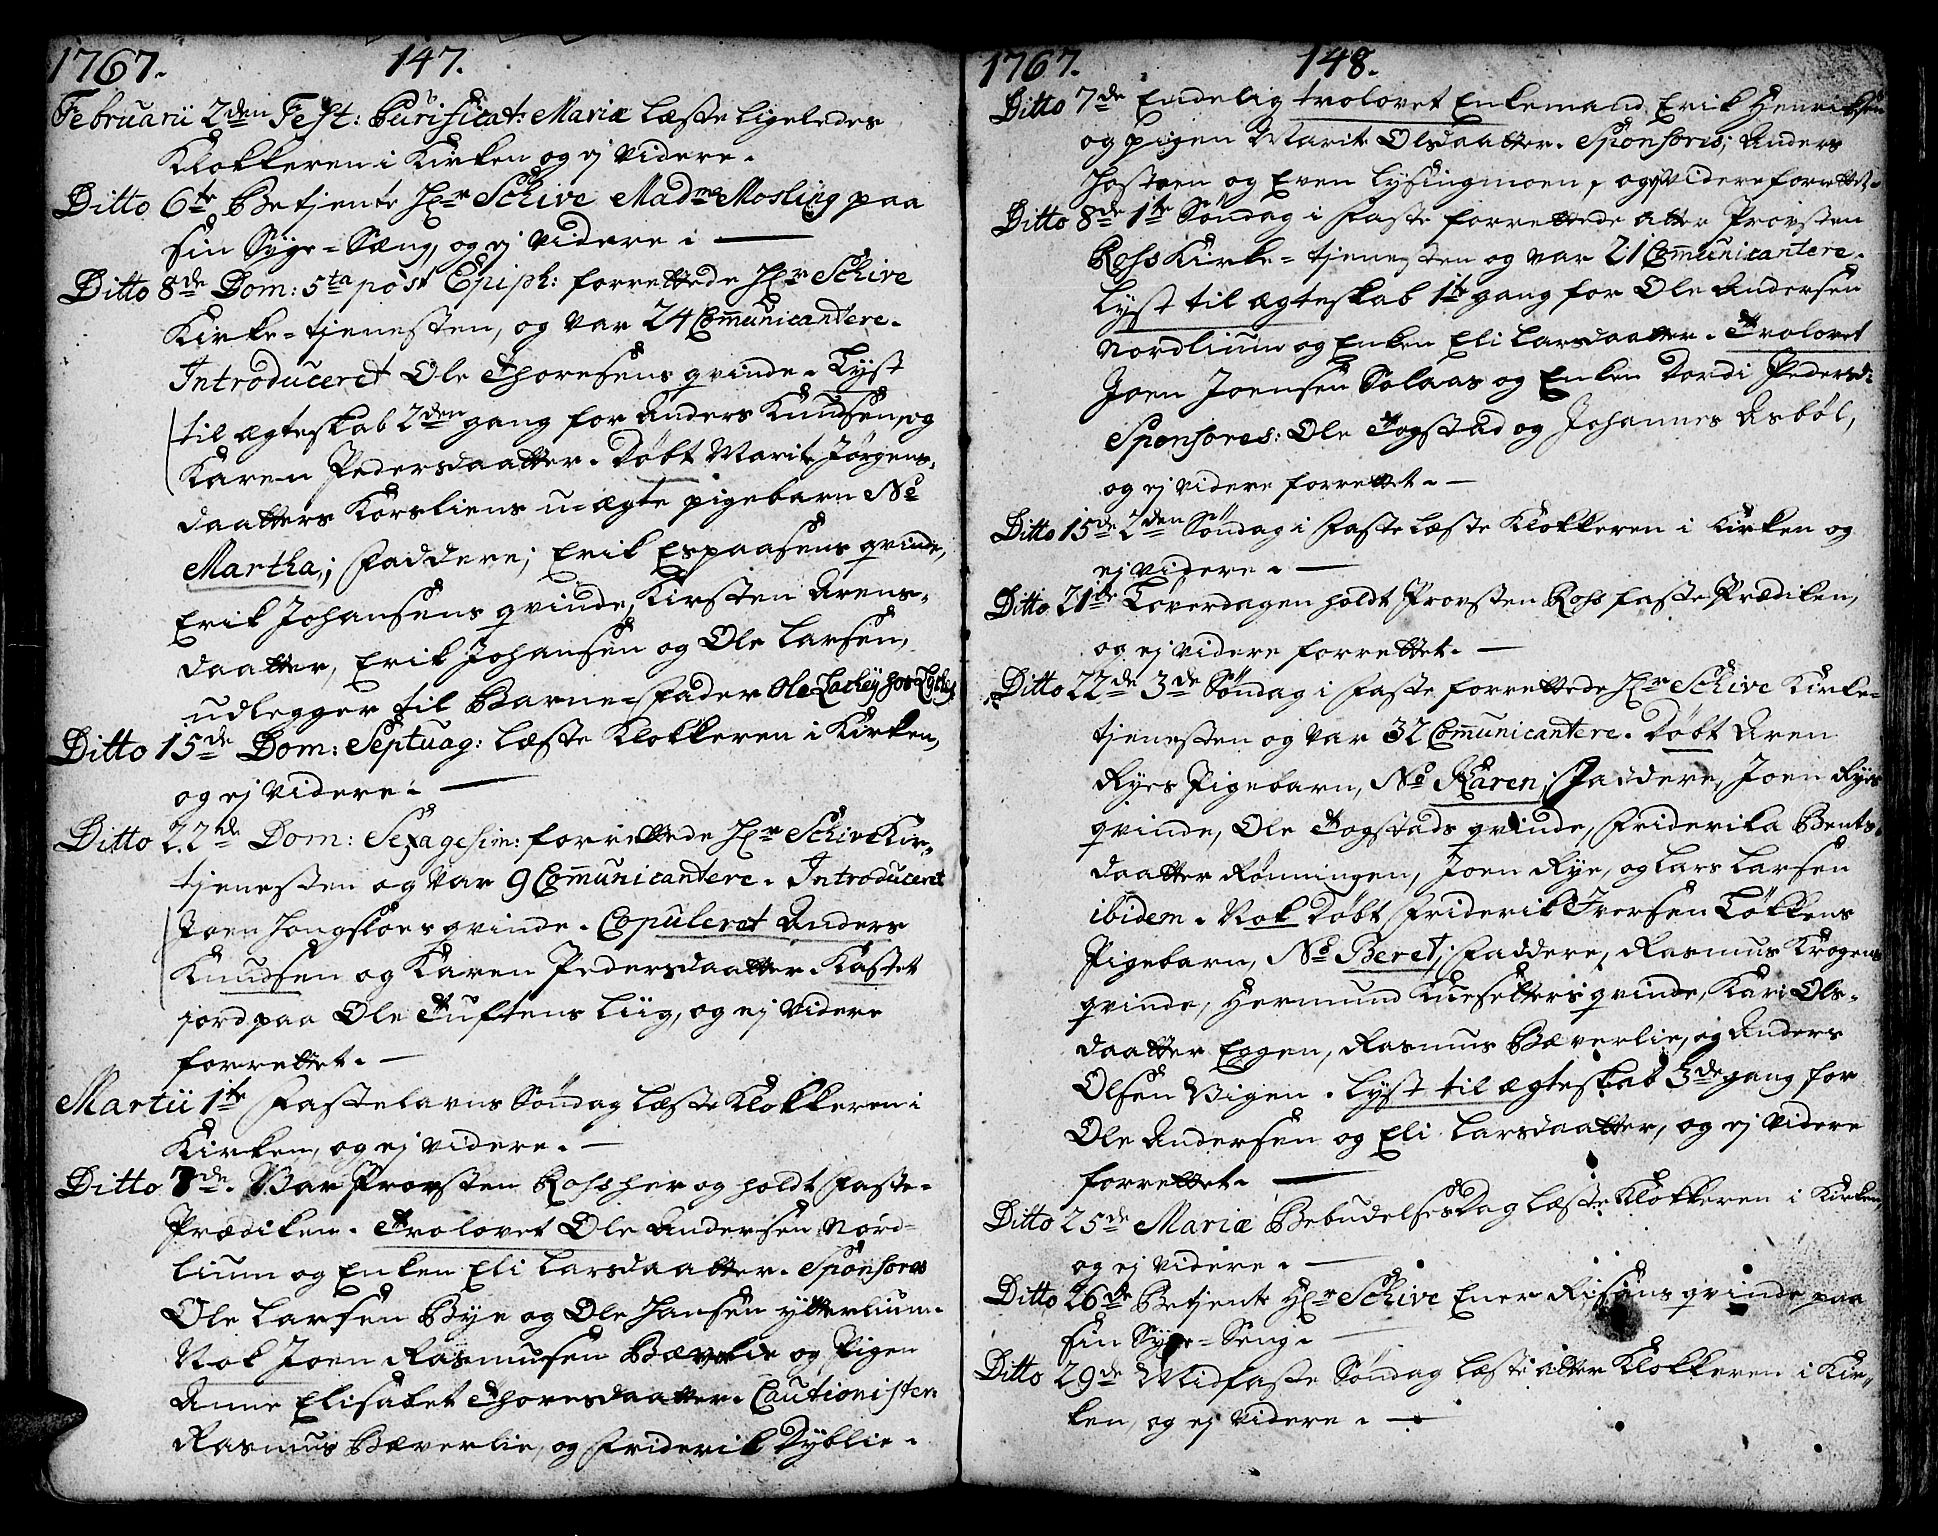 1767. 147.
Februarii 2den Fest: Purificat: Mariæ læste ligeledes
Klokkeren i Kirken og ej videre.
Ditto 6te Betjente Hr Schive Madme Mosling paa
sin Syge-Sæng, og ej videre i —
Ditto 8de Dom: 5ta post Epiph: forrettede Hr Schive
Kirke-tjenesten, og var 24 Communicantere.
Introduceret Ole Thoresens qvinde. Lyst
til ægteskab 2den gang for Anders Knudsen, og
Karen Pedersdaatter. Døbt Marit Jørgens-
daatters Korsliens u-ægte pigebarn No
Martha; Faddere; Erik Espaasens qvinde,
Erik Johansens qvinde, Kirsten Arens-
daatter, Erik Johansen og Ole Larsen,
udlegger til Barne-Fader Ole Lackey hos
Ditto 15de Dom: Septuag: læste Klokkeren i Kirken,
og ej videre. —
Ditto 22de Dom: Sexagesim: forrettede Hr Schive Kir-
tjenesten og var 9 Communicantere. Introduceret
Joen qvinde. Copuleret Anders
Knudsen og Karen Pedersdaatter. Kastet
jord paa Ole Tuftens Liig, og ej videre
forrettet. —
Martii 1te Fastelavns Søndag læste Klokkeren i
Kirken, og ej videre. —
Ditto 7de. Var Provsten Rohs her og holdt Faste-
Prædiken. Trolovet Ole Andersen Nord-
lium og Enken Eli Larsdaatter. Sponsores
Ole Larsen Bye og Ole Jansen ytterlium.
Nok Joen Rasmusen Bæverlie og Pigen
Anne Elisabet Thoresdaatter. Cautionister
Rasmus Bæverlie, og Friderik Dyblie.
1767. 148.
Ditto 7de Endelig trolovet Enkemand Erik Henriksen
og pigen Marit Olsdaatter. Sponsores; Anders
og Even Lysingmoen, og ej videre forrettet.
Ditto 8de 1te Søndag i Faste forrettede atter Provsten
Rohs Kirke-tjenesten og var 21 Communicantere.
Lyst til ægteskab 1te gang for Ole Andersen
Nordlium og Enken Eli Larsdaatter. Trolovet
Joen Joensen Solaas og Enken Dordi Pedersd:
Sponsores: Ole Togstad og Johannes Asbøl,
og ej videre forrettet. —
Ditto 15de 2den Søndag i Faste læste Klokkeren i Kirken og
ej videre. —
Ditto 21de Løverdagen holdt Provsten Rohs Faste-Prædiken,
og ej videre forrettet. —
Ditto 22de 3de Søndag i Faste forrettede Hr Schive Kirke-
tjenesten og var 32 Communicantere. Døbt Aren
Ryes Pigebarn, No Karen; Faddere, Joen Ryes
qvinde, Ole Togstads qvinde, Friderika Bents-
daatter Rønningen, Joen Rye, og Lars Larsen
ibidem. Nok Døbt Friderik Iversen Løkkens
Pigebarn, No Beret; Faddere, Rasmus Krogens
qvinde, Hermund qvinde, Kari Ols-
daatter Eggen, Rasmus Bæverlie, og Anders
Olsen Vigen. Lyst til ægteskab 3de gang for
Ole Andersen og Eli Larsdaatter, og ej videre
forrettet. —
Ditto 25de Mariæ Bebudelses Dag læste Klokkeren i Kirken,
og ej videre. —
Ditto 26de Betjente Hr Schive Ener Risens qvinde paa
sin Syge-Seng. —
Ditto 29de Midfaste Søndag læste atter Klokkeren i Kir-
ken, og ej videre. —